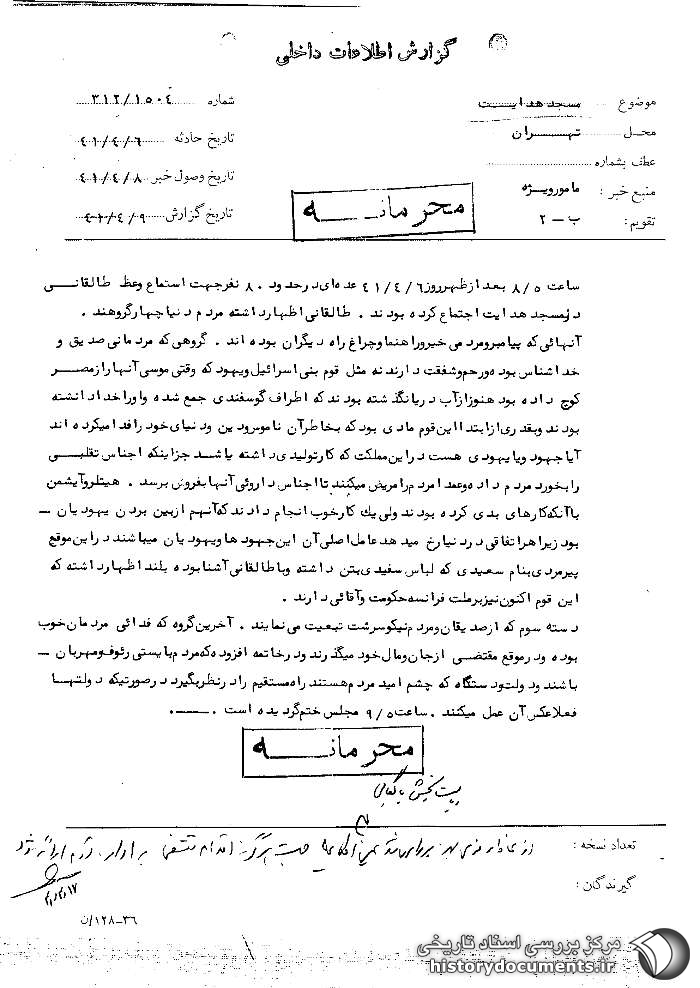 گزارش اطلاعات داخلی
موضوع مسجد هدایت
شماره ۳۱۲/۱۵۰۴
محل تهران
تاریخ حادثه ۴۱/۴/۶
عطف بشماره
تاریخ وصول خبر ۴۱/۴/۸
منبع خبر : مامورویژه
تاریخ گزارش ۴۱/۴/۹
تقویم : ب – ۲
محرمانه
ساعت ۸/۵ بعد از ظهر روز ۴۱/۴/۶ عده‌ای در حدود ۸۰ نفر جهت استماع وعظ طالقانی
در مسجد هدایت اجتماع کرده بودند . طالقانی اظهار داشته مردم دنیا چهار گروهند .
آنهائی که پیامبر و مردمی خیر و راهنما و چراغ راه دیگران بوده اند . گروهی که مردمانی صدیق و
خداشناس بوده و رحم و شفقت دارند نه مثل قوم بنی اسرائیل و یهود که وقتی موسی آنها را از مصر
کوچ داده بود هنوز از آب دریا نگذشته بودند که اطراف گوسفندی جمع شده و او را خدا دانشته
بودند و بقدری از ابتدا این قوم مادی بود که بخاطر آن ناموس و دین و دنیای خود را فدا میکرده اند
آیا جهود و یا یهودی هست در این مملکت که کار تولیدی داشته باشد جز اینکه اجناس تقلبی
را بخورد مردم داده و عمدا مردم را مریض میکنند تا اجناس داروئی آنها بفروش برسد . هیتلر و آیشمن
با آنکه کارهای بدی کرده بودند ولی یك کار خوب انجام دادند که آنهم از بین بردن یهودیان –
بود زیرا هر اتفاقی در دنیا رخ میدهد عامل اصلی آن این جهودها و یهودیان میباشند در این موقع
پیرمردی بنام سعیدی که لباس سفیدی بتن داشته و با طالقانی آشنا بوده بلند اظهار داشته که
این قوم اکنون نیز بر ملت فرانسه حکومت و آقائی دارند .
دسته سوم که از صدیقان و مردم نیکو سرشت تبعیت می نمایند . آخرین گروه که فدائی مردمان خوب
بوده و در موقع مقتضی از جان و مال خود میگذرند و در خاتمه افزوده که مردم بایستی رئوف و مهربان –
باشند و دولت و دستگاه که چشم امید مردم هستند راه مستقیم را در نظر بگیرد در صورتیکه دولتها
فعلا عکس آن عمل میکنند . ساعت ۹/۵ مجلس ختم گردیده است .
محرمانه
تعداد نسخه :
گیرندگان :
۳۶–۱۲۸/ن
مرکز بررسی اسناد تاریخی
historydocuments.ir